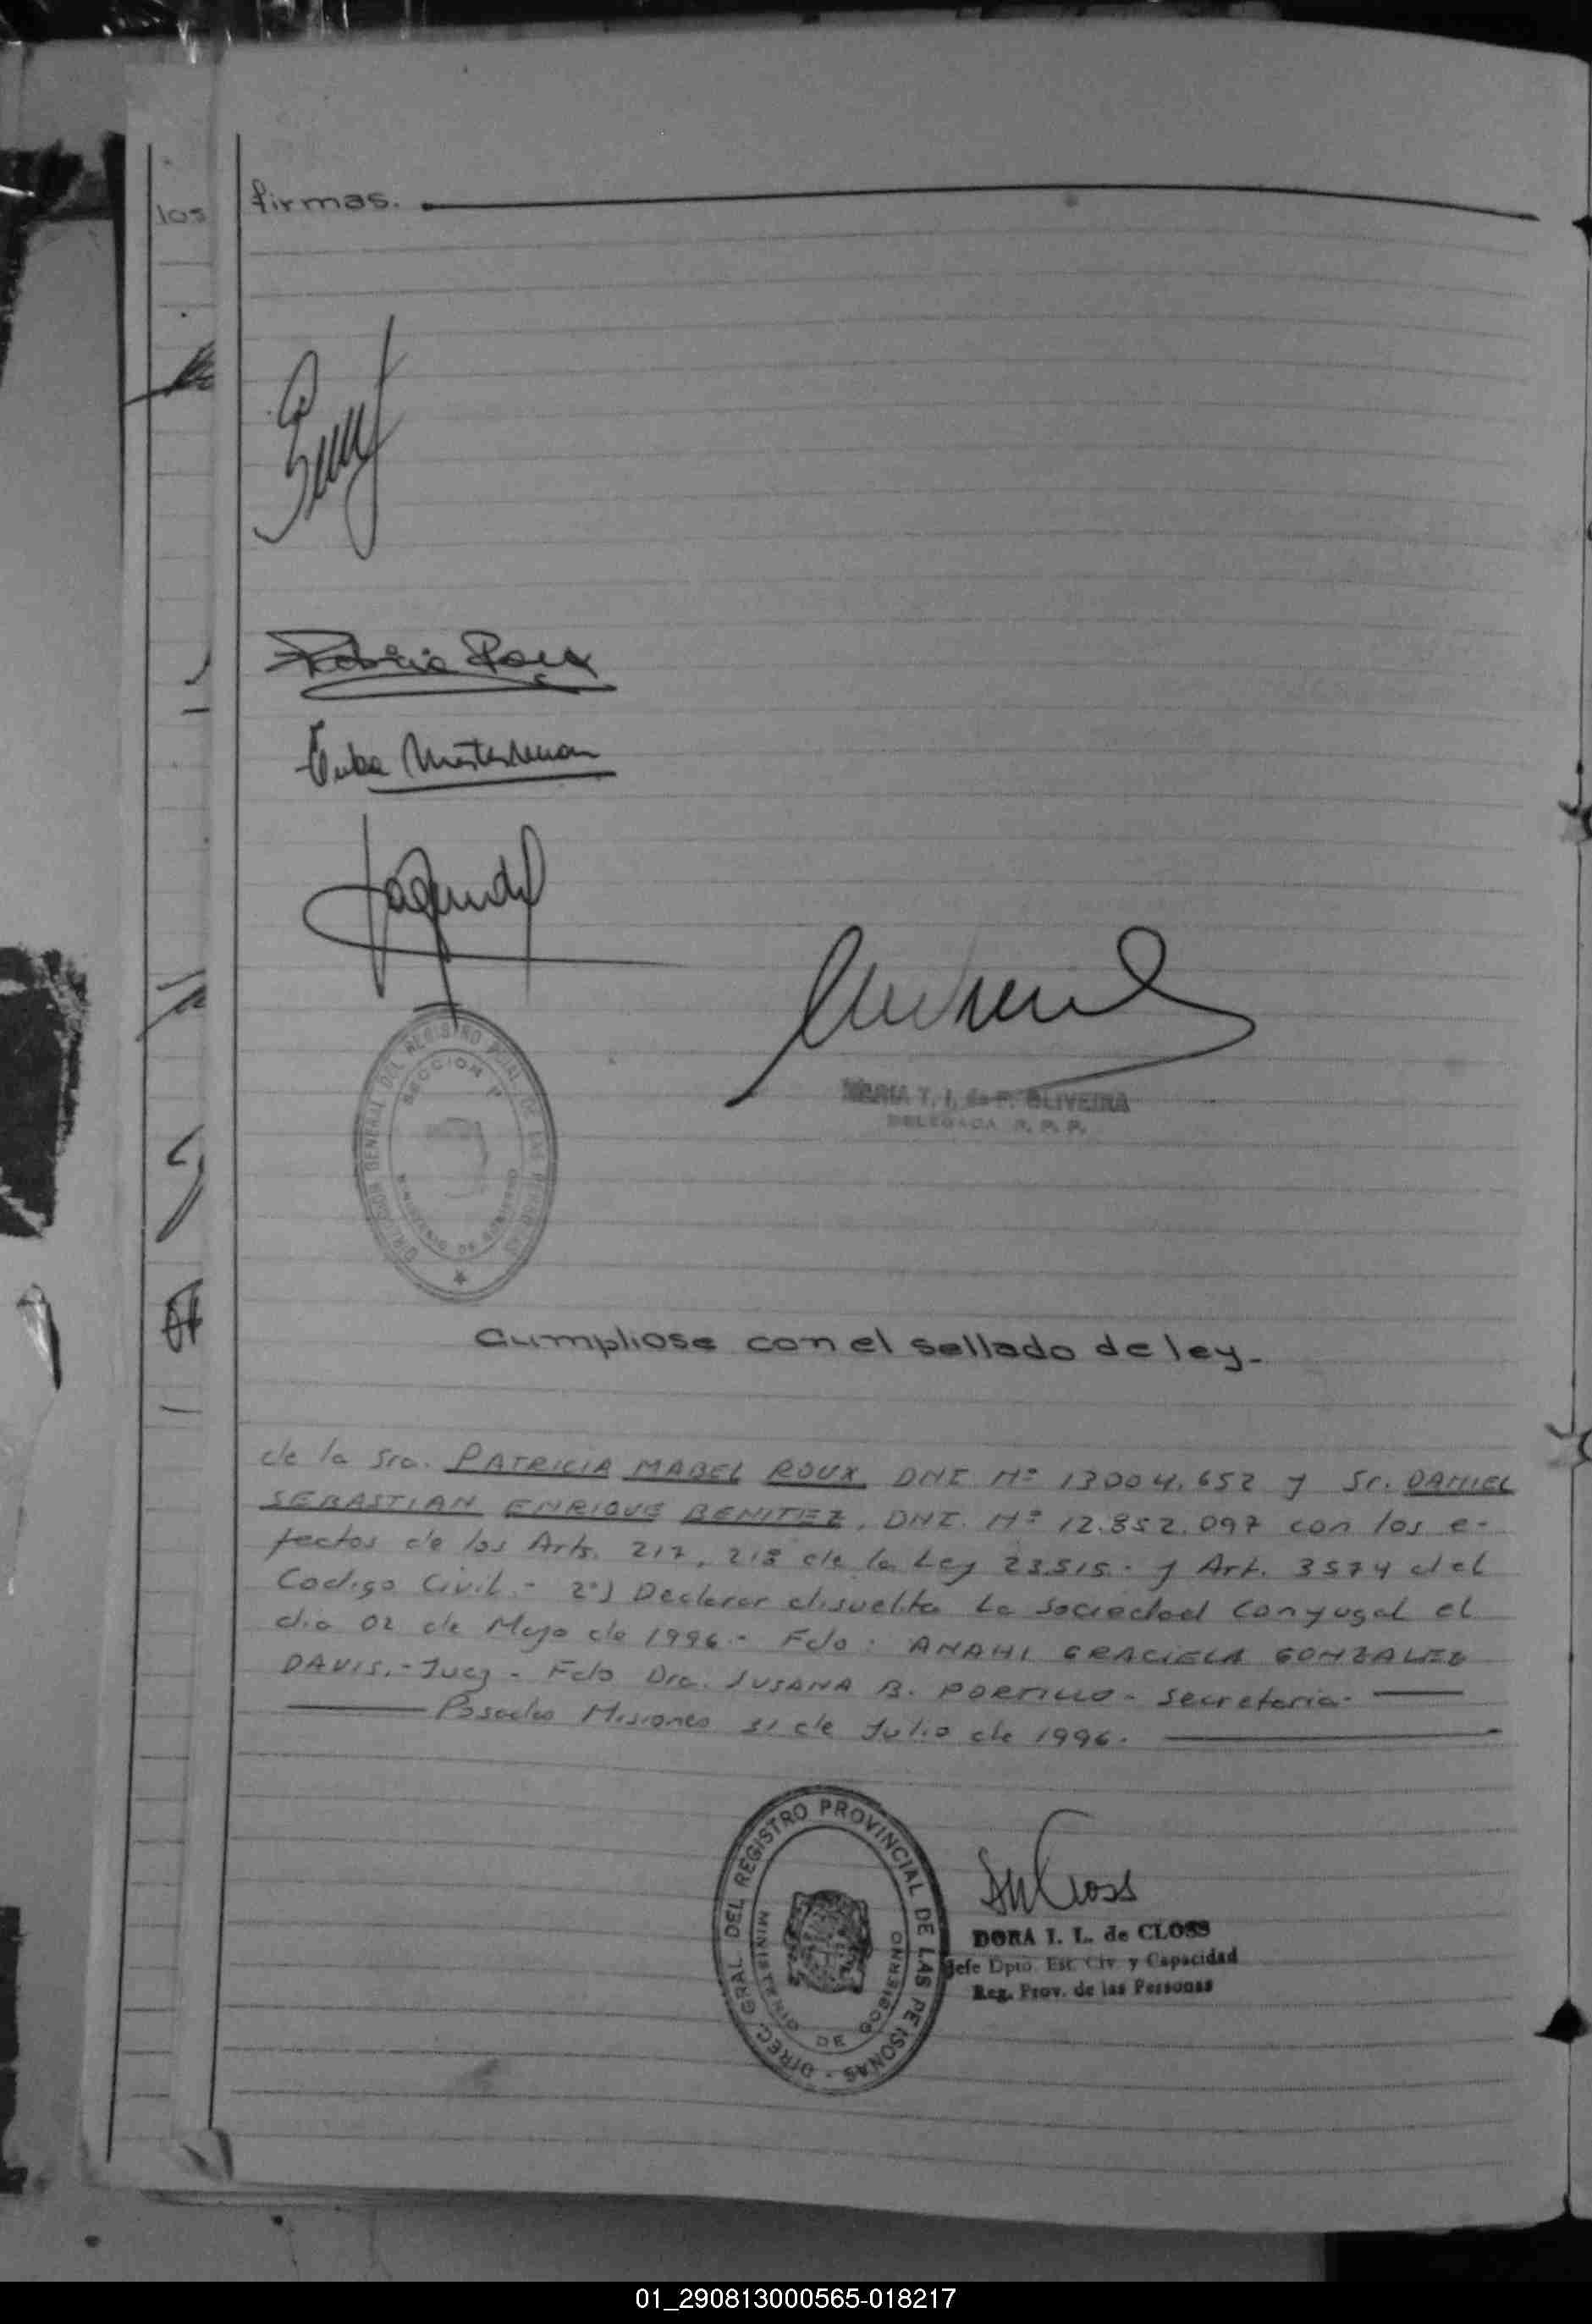 los
firmas.
Patricia Roux
MARIA T. I. de P. OLIVEIRA
DELEGADA R. P. P.
SECCION 1ª
Cumpliose con el sellado de ley.-
de la Sra. PATRICIA MABEL ROUX DNI Nº 13004.652 y Sr. DANIEL
SEBASTIAN ENRIQUE BENITEZ, DNI. Nº 12.852.097 con los e-
fectos de los Arts. 217, 218 de la Ley 23515.- y Art. 3574 del
Codigo Civil.- 2º) Declarar disuelta La Sociedad Conyugal el
dia 02 de Mayo de 1996.- Fdo: ANAHI GRACIELA GONZALEZ
DAVIS.- Juez - Fdo Dra. SUSANA B. PORTILLO - Secretaria.-
Posadas Misiones 31 de Julio de 1996.-
DIREC. GRAL. DEL REGISTRO PROVINCIAL DE LAS PE SONAS -
MINISTERIO DE GOBIERNO
DORA I. L. de CLOSS
Jefe Dpto. Est. Civ. y Capacidad
Reg. Prov. de las Personas
01_290813000565-018217